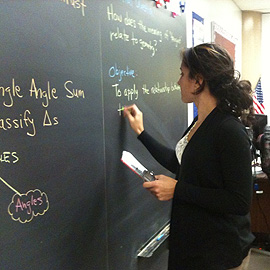 How does the measure of
relate to geometry?
Objective:
To apply the relationship
ngle Angle Sum
assify Δs
LES
Angles